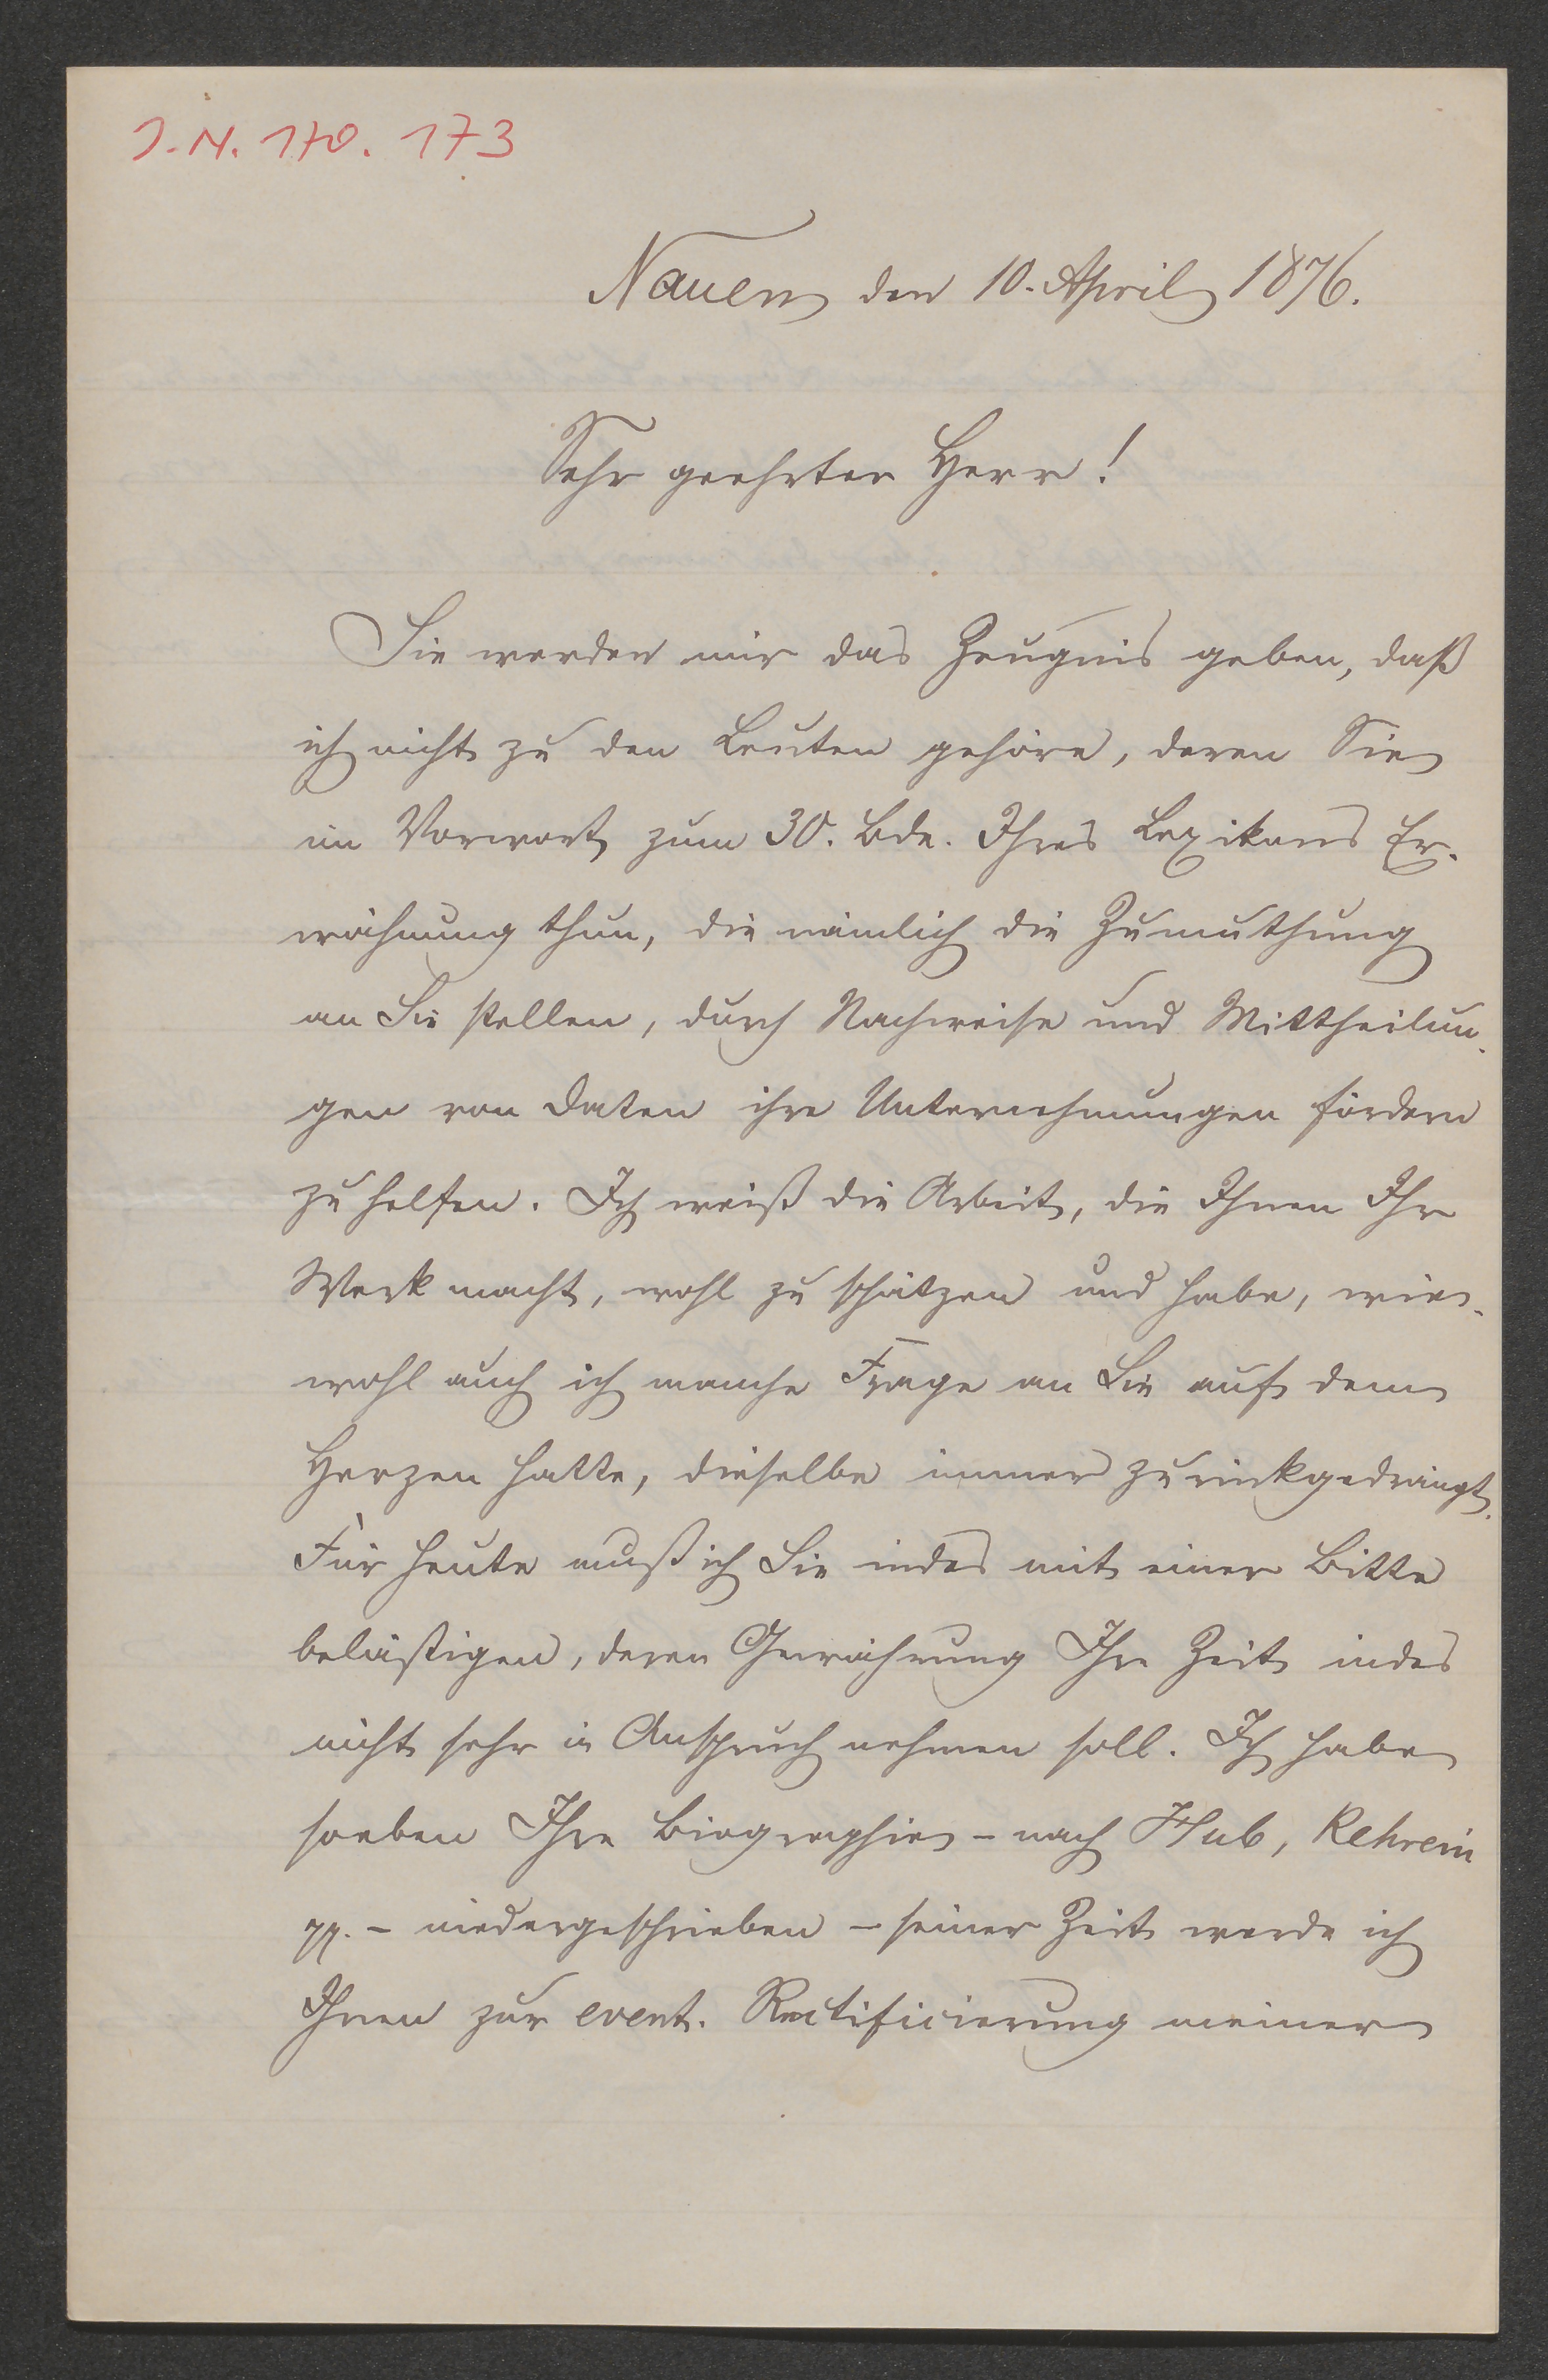 J.N. 170.173
Nauen den 10. April 1876.
Sehr geehrter Herr!
Sie werden mir das Zeugnis geben, daß
ich nicht zu den Leuten gehöre, deren Sie
im Vorwort zum 30. Bde. Ihres Lexikons Er-
wähnung thun, die nämlich die Zumuthung
an Sie stellen, durch Nachweise und Mittheilun-
gen von Daten ihre Unternehmungen fördern
zu helfen. Ich weiß die Arbeit, die Ihnen Ihr
Werk macht, wohl zu schätzen und habe, wie-
wohl auch ich manche Frage an Sie auf dem
Herzen hatte, dieselbe immer zurückgedrängt.
Für heute muß ich Sie indes mit einer Bitte
belästigen, deren Gewährung Ihre Zeit indes
nicht sehr in Anspruch nehmen soll. Ich habe
soeben Ihre Biographie - nach Hub, Kehrein
pp. - niedergeschrieben - seiner Zeit werde ich
Ihnen zur event. Rectificierung meiner